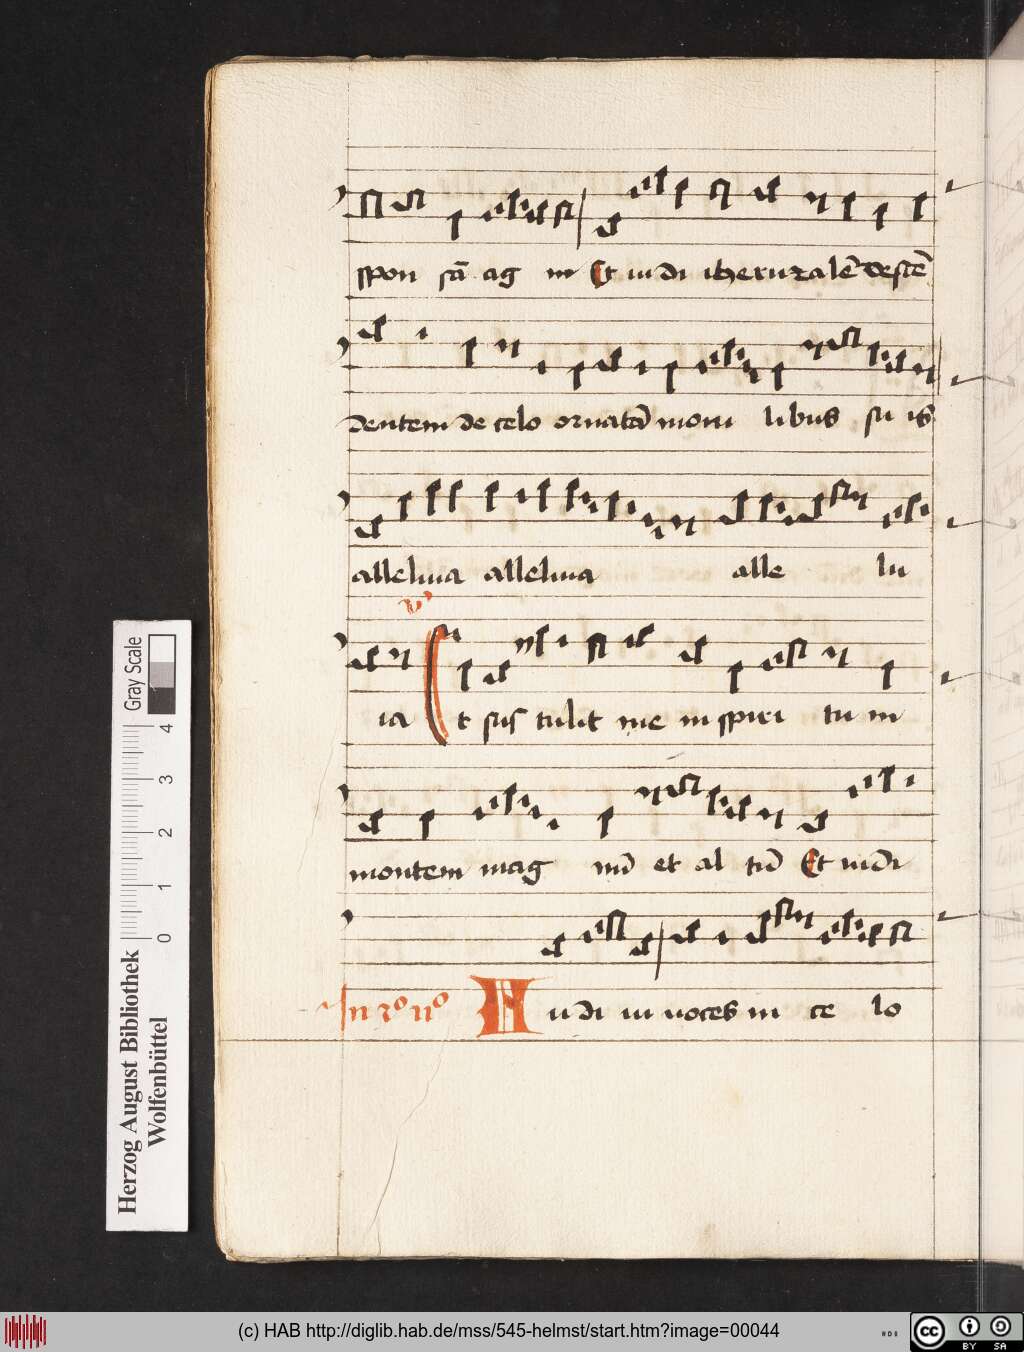 spon sā ag ni Et uidi iherusalē descē
dentem de celo ornatā moni libus su is
alleluia alleluia alle lu
v̕
ia Et sus tulit me in spiri tu in
montem mag nū et al tū Et uidi
In 2º nº Audi ui uoces in ce lo
Gray Scale
4
3
2
1
0
Herzog August Bibliothek
Wolfenbüttel
(c) HAB http://diglib.hab.de/mss/545-helmst/start.htm?image=00044
cc
BY
SA